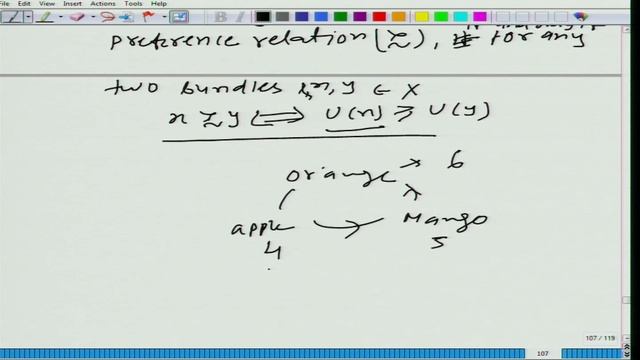 File Edit View Insert Actions Tools Help
preference relation (≿), for any
two bundles x, y ∈ X
x ≿ y ⟺ U(x) ≥ U(y)
orange → 6
apple → Mango
4 5
107 / 119
107